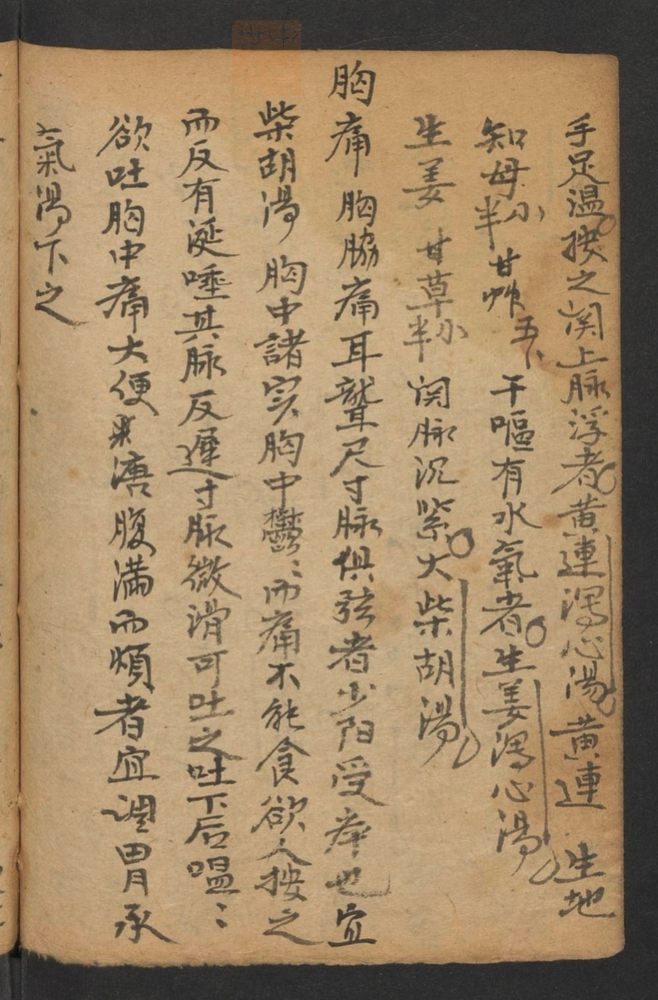 手足温按之関上脉浮者黄連瀉心湯黄連 生地
知母小半甘艸五卜 干嘔有水氣者生姜瀉心湯
生姜 甘草小半 関脉沉紧大柴胡湯
胸痛胸脇痛耳聾尺寸脉俱弦者少阳受病也宜
柴胡湯 胸中諸实胸中鬱〻而痛不能食欲人按之
而反有涎唾其脉反遲寸脉微滑可吐之吐下后嗢〻
欲吐胸中痛大便溏腹滿而煩者宜调胃承
氣湯下之